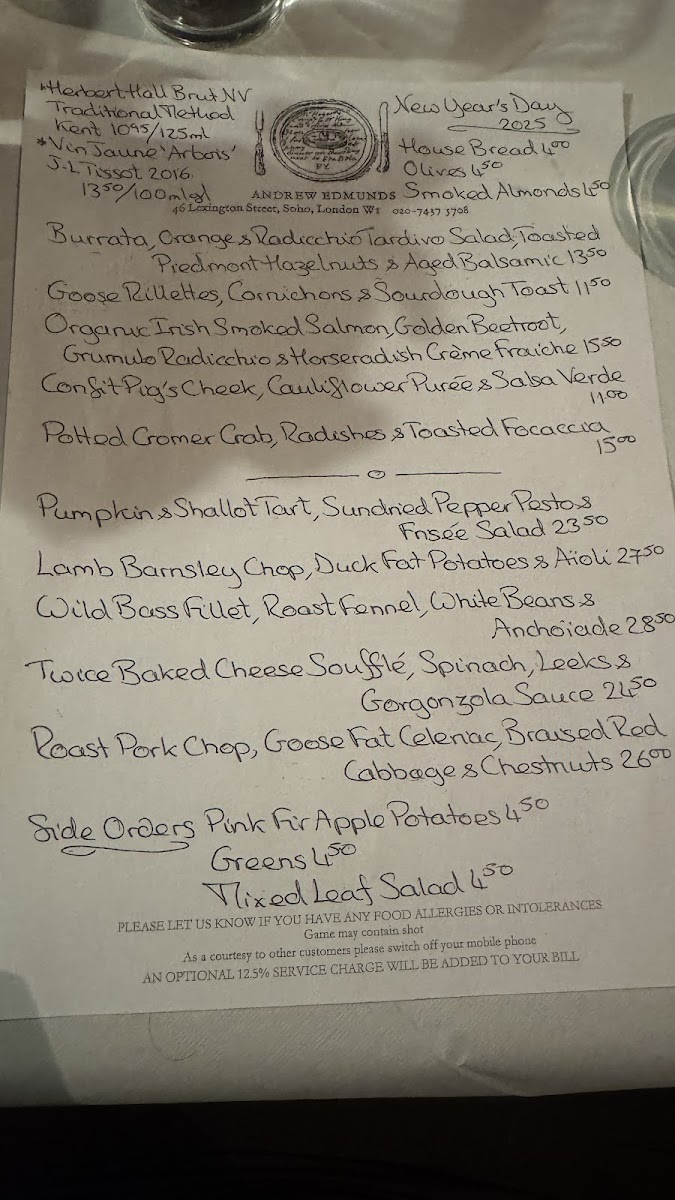 *Herbert Hall Brut NV
Traditional Method
Kent 10⁹⁵/125ml
*Vin Jaune 'Arbois'
J-L Tissot 2016
13⁵⁰/100ml gl
New Year's Day
2025
House Bread 4⁰⁰
Olives 4⁵⁰
Smoked Almonds 4⁵⁰
ANDREW EDMUNDS
46 Lexington Street, Soho, London W1 020-7437 5708
Burrata, Orange & Radicchio Tardivo Salad, Toasted
Piedmont Hazelnuts & Aged Balsamic 13⁵⁰
Goose Rillettes, Cornichons & Sourdough Toast 11⁵⁰
Organic Irish Smoked Salmon, Golden Beetroot,
Grumulo Radicchio & Horseradish Crème Fraîche 15⁵⁰
Confit Pig's Cheek, Cauliflower Purée & Salsa Verde
11.⁰⁰
Potted Cromer Crab, Radishes & Toasted Focaccia
15⁰⁰
Pumpkin & Shallot Tart, Sundried Pepper Pesto &
Frisée Salad 23⁵⁰
Lamb Barnsley Chop, Duck Fat Potatoes & Aïoli 27⁵⁰
Wild Bass Fillet, Roast Fennel, White Beans &
Anchoïade 28⁵⁰
Twice Baked Cheese Soufflé, Spinach, Leeks &
Gorgonzola Sauce 24⁵⁰
Roast Pork Chop, Goose Fat Celeriac, Braised Red
Cabbage & Chestnuts 26⁰⁰
Side Orders Pink Fir Apple Potatoes 4⁵⁰
Greens 4⁵⁰
Mixed Leaf Salad 4⁵⁰
PLEASE LET US KNOW IF YOU HAVE ANY FOOD ALLERGIES OR INTOLERANCES
Game may contain shot
As a courtesy to other customers please switch off your mobile phone
AN OPTIONAL 12.5% SERVICE CHARGE WILL BE ADDED TO YOUR BILL